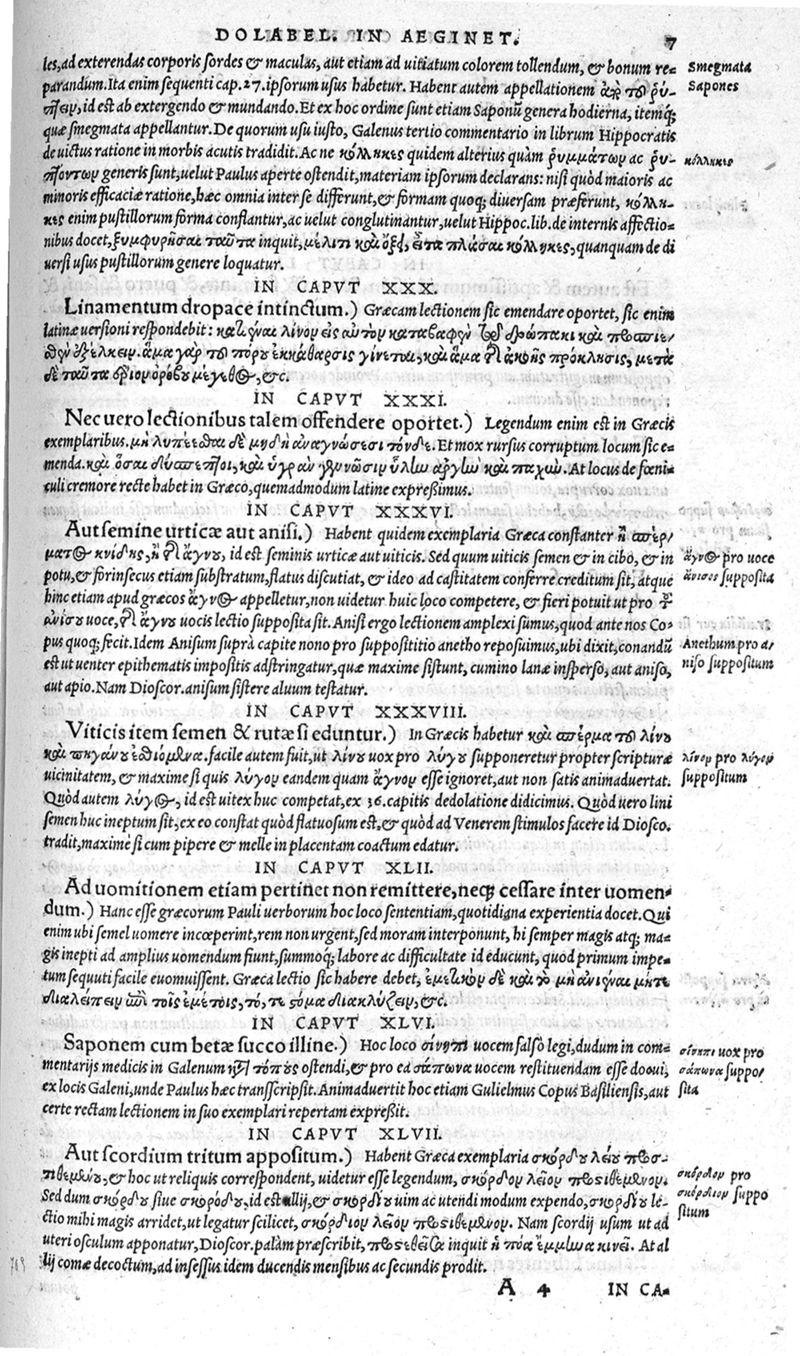 DOLABEL. IN AEGINET. 7
les, ad exterendas corporis sordes & maculas, aut etiam ad uitiatum colorem tollendum, & bonum re-
Smegmata
parandum. Ita enim sequenti cap. 27. ipsorum usus habetur. Habent autem appellationem ἀπὸ τοῦ ῥύ-
Sapones
πτειν, id est ab extergendo & mundando. Et ex hoc ordine sunt etiam Saponũ genera hodierna, itemq́;
quæ smegmata appellantur. De quorum usu iusto, Galenus tertio commentario in librum Hippocratis
de uictus ratione in morbis acutis tradidit. Ac ne κόλληκες quidem alterius quàm ῥυμμάτων ac ῥυ-
κόλληκες
πτόντων generis sunt, uelut Paulus aperte ostendit, materiam ipsorum declarans: nisi quòd maioris ac
minoris efficaciæ ratione, hæc omnia inter se differunt, & formam quoq; diuersam præferunt, κόλλη-
κες enim pustillorum forma conflantur, ac uelut conglutinantur, uelut Hippoc. lib. de internis affectio-
nibus docet, ξυμφυρῆσαι ταῦτα inquit, μέλιτι καὶ ὄξει, εἶτα πλάσαι κόλληκες, quanquam de di
uersi usus pustillorum genere loquatur.
IN CAPVT XXX.
Linamentum dropace intinctum.) Græcam lectionem sic emendare oportet, sic enim
latinæ uersioni respondebit: καθιέναι λίνον εἰς αὐτὸν καταβαφὲν δρώπακι καὶ
ἐξέλκειν. ἅμα γὰρ τοῦ πόρου ἐκκάθαρσις γίνεται, καὶ ἅμα τῆς ἀκοῆς πρόκλησις, μετὰ
δὲ ταῦτα ὀρόβου μέγεθος, &c.
IN CAPVT XXXI.
Nec uero lectionibus talem offendere oportet.) Legendum enim est in Græcis
exemplaribus. μὴ λυπεῖσθαι δὲ μηδὲ ἀναγνώσεσι τόνδε. Et mox rursus corruptum locum sic e-
menda. καὶ ὅσαι δύσπεπτοι, καὶ ὑγρὰν γεννῶσιν ὕλην ἀργὴν καὶ παχύν. At locus de fœni-
culi cremore recte habet in Græco, quemadmodum latine expreßimus.
IN CAPVT XXXVI.
Aut semine urticæ aut anisi.) Habent quidem exemplaria Græca constanter ἢ σπέρ-
ματος κνίδης, ἢ τῆς ἄγνου, id est seminis urticæ aut uiticis. Sed quum uiticis semen & in cibo, & in
ἄγνος pro uoce
potu, & forinsecus etiam substratum, flatus discutiat, & ideo ad castitatem conferre creditum sit, atque
ἄνισος supposita
hinc etiam apud græcos ἄγνος appelletur, non uidetur huic loco competere, & fieri potuit ut pro τοῦ
ἀνίσου uoce, τῆς ἄγνου uocis lectio supposita sit. Anisi ergo lectionem amplexi sumus, quod ante nos Co-
pus quoq; fecit. Idem Anisum suprà capite nono pro supposititio anetho reposuimus, ubi dixit, conandũ
Anethum pro a-
est ut uenter epithematis impositis adstringatur, quæ maxime sistunt, cumino lanæ insperso, aut aniso,
niso suppositum
aut apio. Nam Dioscor. anisum sistere aluum testatur.
IN CAPVT XXXVIII.
Viticis item semen & rutæ si eduntur.) In Græcis habetur καὶ σπέρμα τοῦ λίνου
καὶ πηγάνου ἐσθιόμενα. facile autem fuit, ut λίνου uox pro λύγου supponeretur propter scripturæ
λίνον pro λύγον
uicinitatem, & maxime si quis λύγον eandem quam ἄγνον esse ignoret, aut non satis animaduertat.
suppositum
Quòd autem λύγος, id est uitex huc competat, ex 36. capitis dedolatione didicimus. Quòd uero lini
semen huc ineptum sit, ex eo constat quòd flatuosum est, & quòd ad Venerem stimulos facere id Diosco.
tradit, maxime si cum pipere & melle in placentam coactum edatur.
IN CAPVT XLII.
Ad uomitionem etiam pertinet non remittere, neq; cessare inter uomen-
dum.) Hanc esse græcorum Pauli uerborum hoc loco sententiam, quotidiana experientia docet. Qui
enim ubi semel uomere incœperint, rem non urgent, sed moram interponunt, hi semper magis atq; ma-
gis inepti ad amplius uomendum fiunt, summoq; labore ac difficultate id educunt, quod primum impe-
tum sequuti facile euomuissent. Græca lectio sic habere debet, ἐμετικὸν δὲ καὶ τὸ μὴ ἀνιέναι μήτε
διαλείπειν ἐπὶ τοῖς ἐμέτοις, τό, τε στόμα διακλύζειν, &c.
IN CAPVT XLVI.
Saponem cum betæ succo illine.) Hoc loco σίνηπι uocem falsò legi, dudum in com-
σίνηπι uox pro
mentarijs medicis in Galenum κατὰ τόπους ostendi, & pro ea σάπωνα uocem restituendam esse docui,
σάπωνα suppo-
ex locis Galeni, unde Paulus hæc transscripsit. Animaduertit hoc etiam Gulielmus Copus Basiliensis, aut
sita
certe rectam lectionem in suo exemplari repertam expreßit.
IN CAPVT XLVII.
Aut scordium tritum appositum.) Habent Græca exemplaria σκόρδου λείου προσ-
τιθεμένου, & hoc ut reliquis correspondent, uidetur esse legendum, σκόρδιον λεῖον προστιθέμενον.
σκόρδιον pro
Sed dum σκόρδου siue σκορόδου, id est allij, & σκορδίου uim ac utendi modum expendo, σκορδίου le-
σκόρδιον suppo
ctio mihi magis arridet, ut legatur scilicet, σκόρδιον λεῖον προστιθέμενον. Nam scordij usum ut ad
situm
uteri osculum apponatur, Dioscor. palàm præscribit, προστεθεῖσα inquit ἡ πόα ἔμμηνα κινεῖ. At al
lij comæ decoctum, ad insessus idem ducendis mensibus ac secundis prodit.
A 4 IN CA-